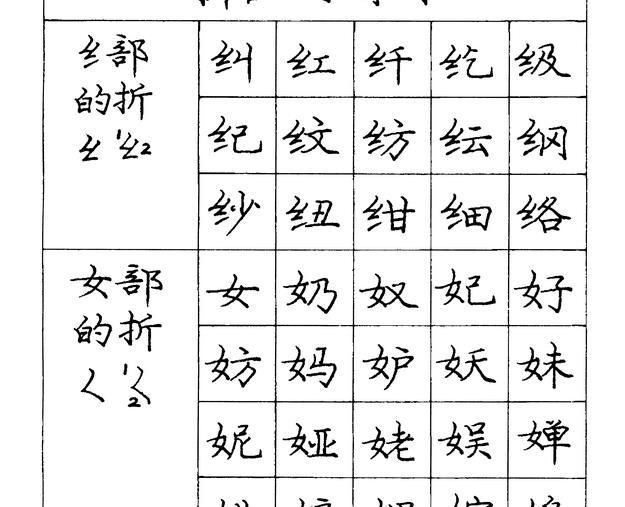 纟部
的折
纠 红 纤 纥 级
纪 纹 纺 纭 纲
纱 纽 绀 细 络
女部
的折
女 奶 奴 妃 好
妨 妈 妒 妖 妹
妮 娅 姥 娱 婵